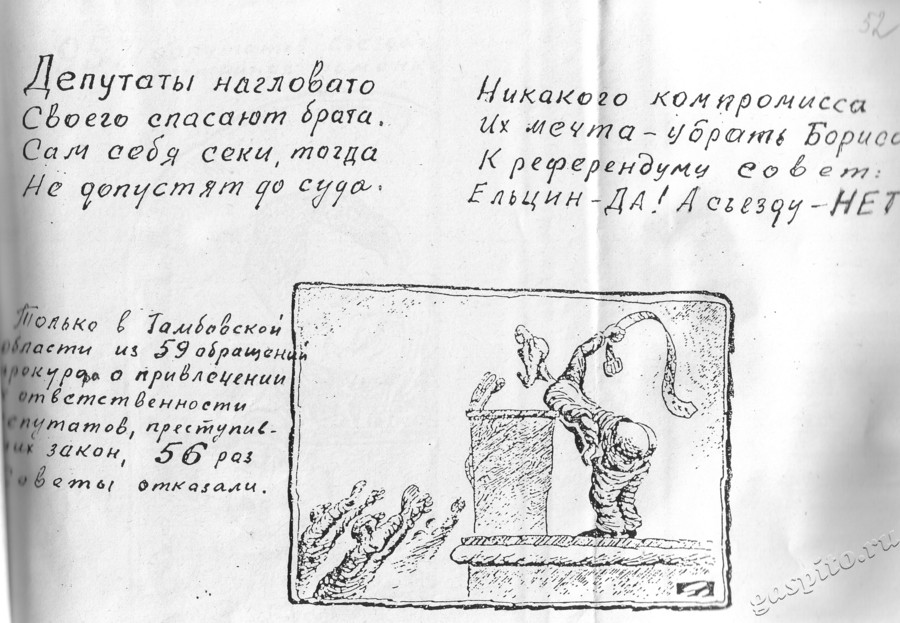 52
Депутаты нагловато
Своего спасают брата.
Сам себя секи, тогда
Не допустят до суда.
Никакого компромисса
Их мечта – убрать Борис
К референдуму совет:
Ельцин – ДА! А съезду – НЕТ
Только в Тамбовской
области из 59 обращений
прокурора о привлечении
к ответственности
депутатов, преступив-
ших закон, 56 раз
Советы отказали.
gaspito.ru